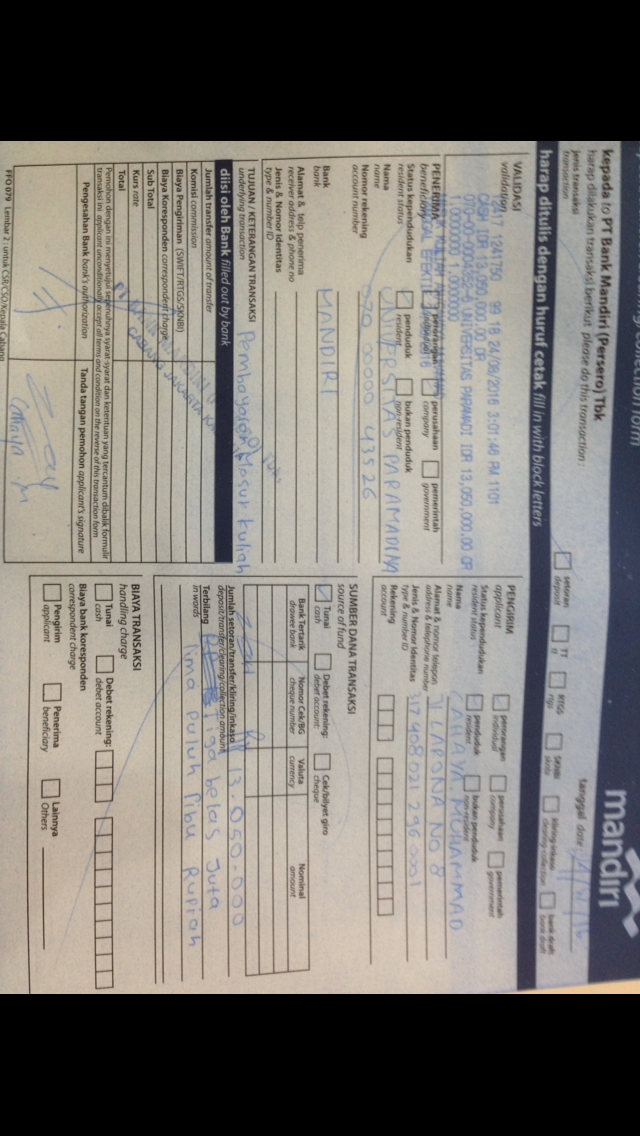 kepada to PT Bank Mandiri (Persero) Tbk
harap dilakukan transaksi berikut please do this transaction :
mandiri
tanggal date :
jenis transaksi
transaction
setoran
deposit
TT
tt
RTGS
rtgs
SKNBI
sknbi
kliring-inkaso
clearing-collection
bank draft
bank draft
harap ditulis dengan huruf cetak fill in with block letters
VALIDASI
validation
1241750 99 18 24/08/2016 3:01:46 PM 1101
CASH IDR 13,050,000.00 DR
UNIVERSITAS PARAMADI IDR 13,050,000.00 CR
1.0000000 1.0000000
PENERIMA
beneficiary
perorangan
individual
perusahaan
company
pemerintah
government
Status kependudukan
resident status
penduduk
resident
bukan penduduk
non resident
Nama
name
UNIVERSITAS PARAMADINA
Nomor rekening
account number
070 00000 43526
Bank
bank
MANDIRI
Alamat & telp penerima
receiver address & phone no
Jenis & Nomor Identitas
type & number ID
TUJUAN / KETERANGAN TRANSAKSI
underlying transaction
Pembayaran
kuliah
diisi oleh Bank filled out by bank
Jumlah transfer amount of transfer
Komisi commission
Biaya Pengiriman (SWIFT/RTGS/SKNBI)
Biaya Koresponden correspondent charge
Sub Total
Kurs rate
Total
Pemohon dengan ini menyetujui sepenuhnya syarat-syarat dan ketentuan yang tercantum dibalik formulir
transaksi ini applicant unconditionally accept all terms and condition on the reverse of this transaction form
Pengesahan Bank bank's authorization
Tanda tangan pemohon applicant's signature
Cahaya M
FFO 079 Lembar 2 : Untuk CSR/CSO/Kepala Cabang
PENGIRIM
applicant
perorangan
individual
perusahaan
company
pemerintah
government
Status kependudukan
resident status
penduduk
resident
bukan penduduk
non resident
Nama
name
CAHAYA MUHAMMAD
Alamat & nomor telepon
address & telephone number
NO 8
Jenis & Nomor Identitas
type & number ID
Rekening
account
SUMBER DANA TRANSAKSI
source of fund
Tunai
cash
Debet rekening:
debet account:
Cek/bilyet giro
cheque
Bank Tertarik
drawee bank
Nomor Cek/BG
cheque number
Valuta
currency
Nominal
amount
Jumlah setoran/transfer/kliring/inkaso
deposit/transfer/clearing/collection amount
13.050.000
Terbilang
in words
Tiga belas Juta
lima puluh ribu Rupiah
BIAYA TRANSAKSI
handling charge
Tunai
cash
Debet rekening:
debet account:
Biaya bank koresponden
correspondent charge
Pengirim
applicant
Penerima
beneficiary
Lainnya
Others